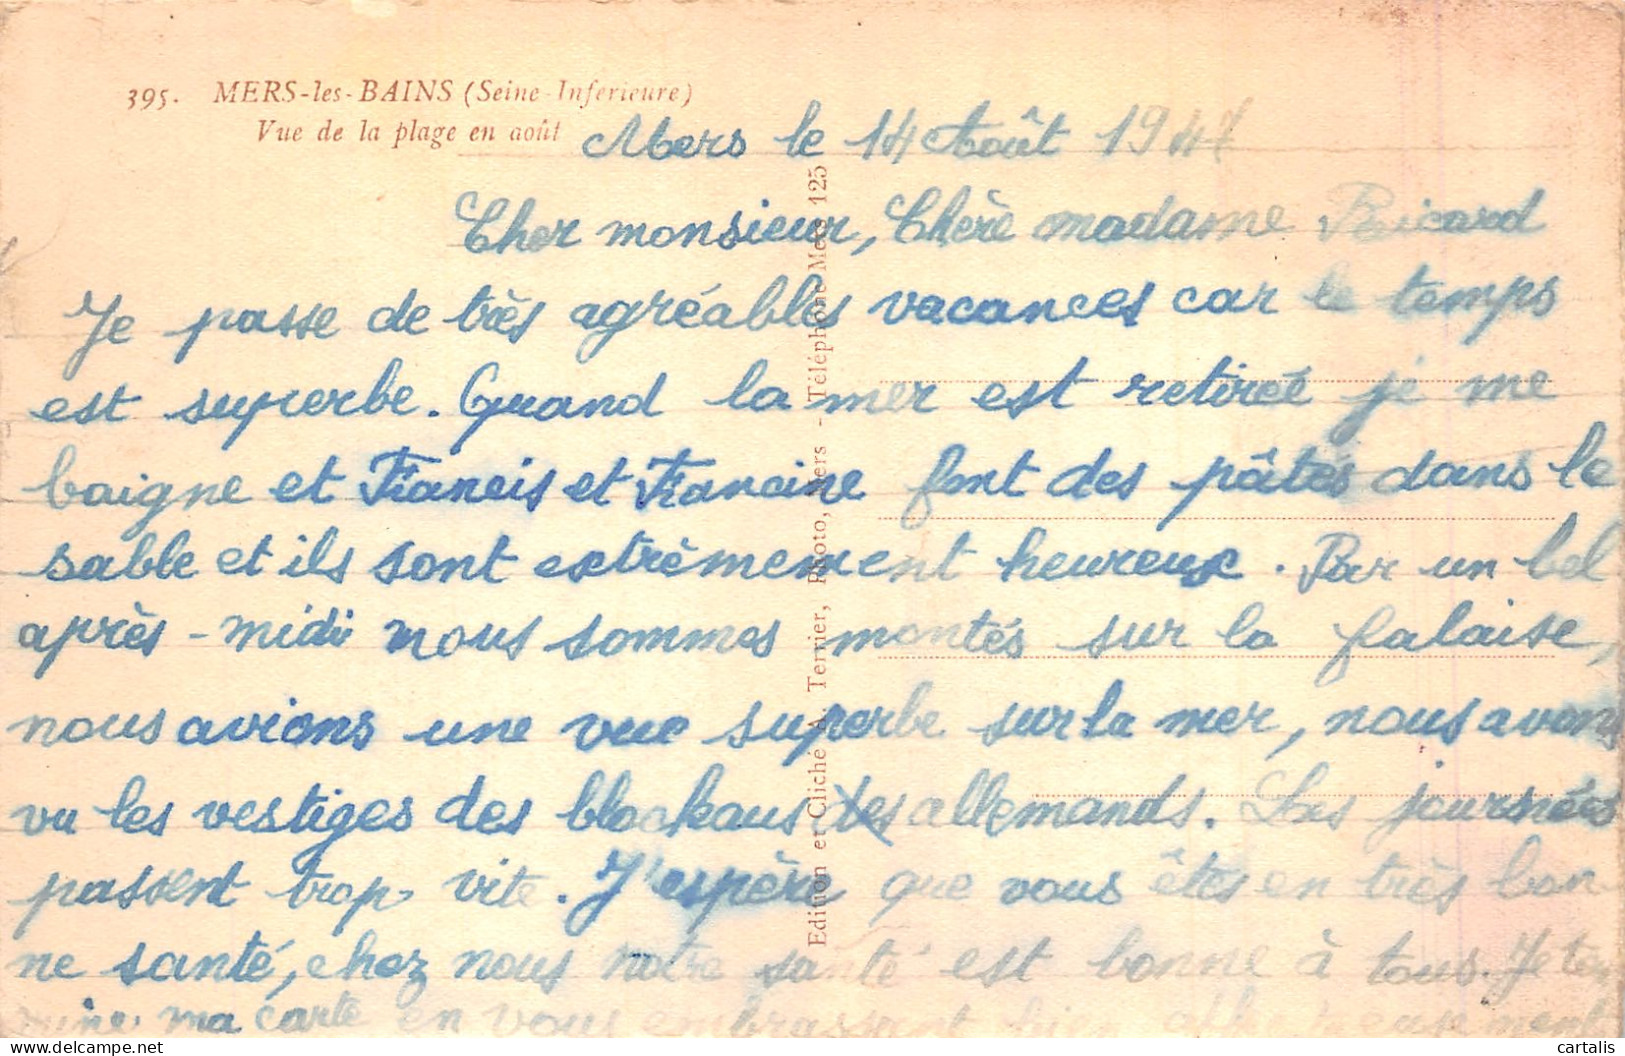 395. MERS-les-BAINS (Seine-Inférieure)
Vue de la plage en août
Mers le 14 Août 1947
Cher monsieur, Chère madame Ricard
Je passe de très agréables vacances car le temps
est superbe. Quand la mer est retireé je me
baigne et Francis et Francine font des pâtés dans le
sable et ils sont extrèmement heureux. Par un bel
après-midi nous sommes montés sur la falaise,
nous avions une vue superbe sur la mer, nous avons
vu les vestiges des blockaus des allemands. Les journées
passent trop vite. J'espère que vous êtes en très bon
ne santé, chez nous notre santé est bonne à tous. Je ter
mine ma carte en vous embrassant bien
Edition et Cliché A. Terrier, Photo, Mers - Téléphone Mers 125
cartalis